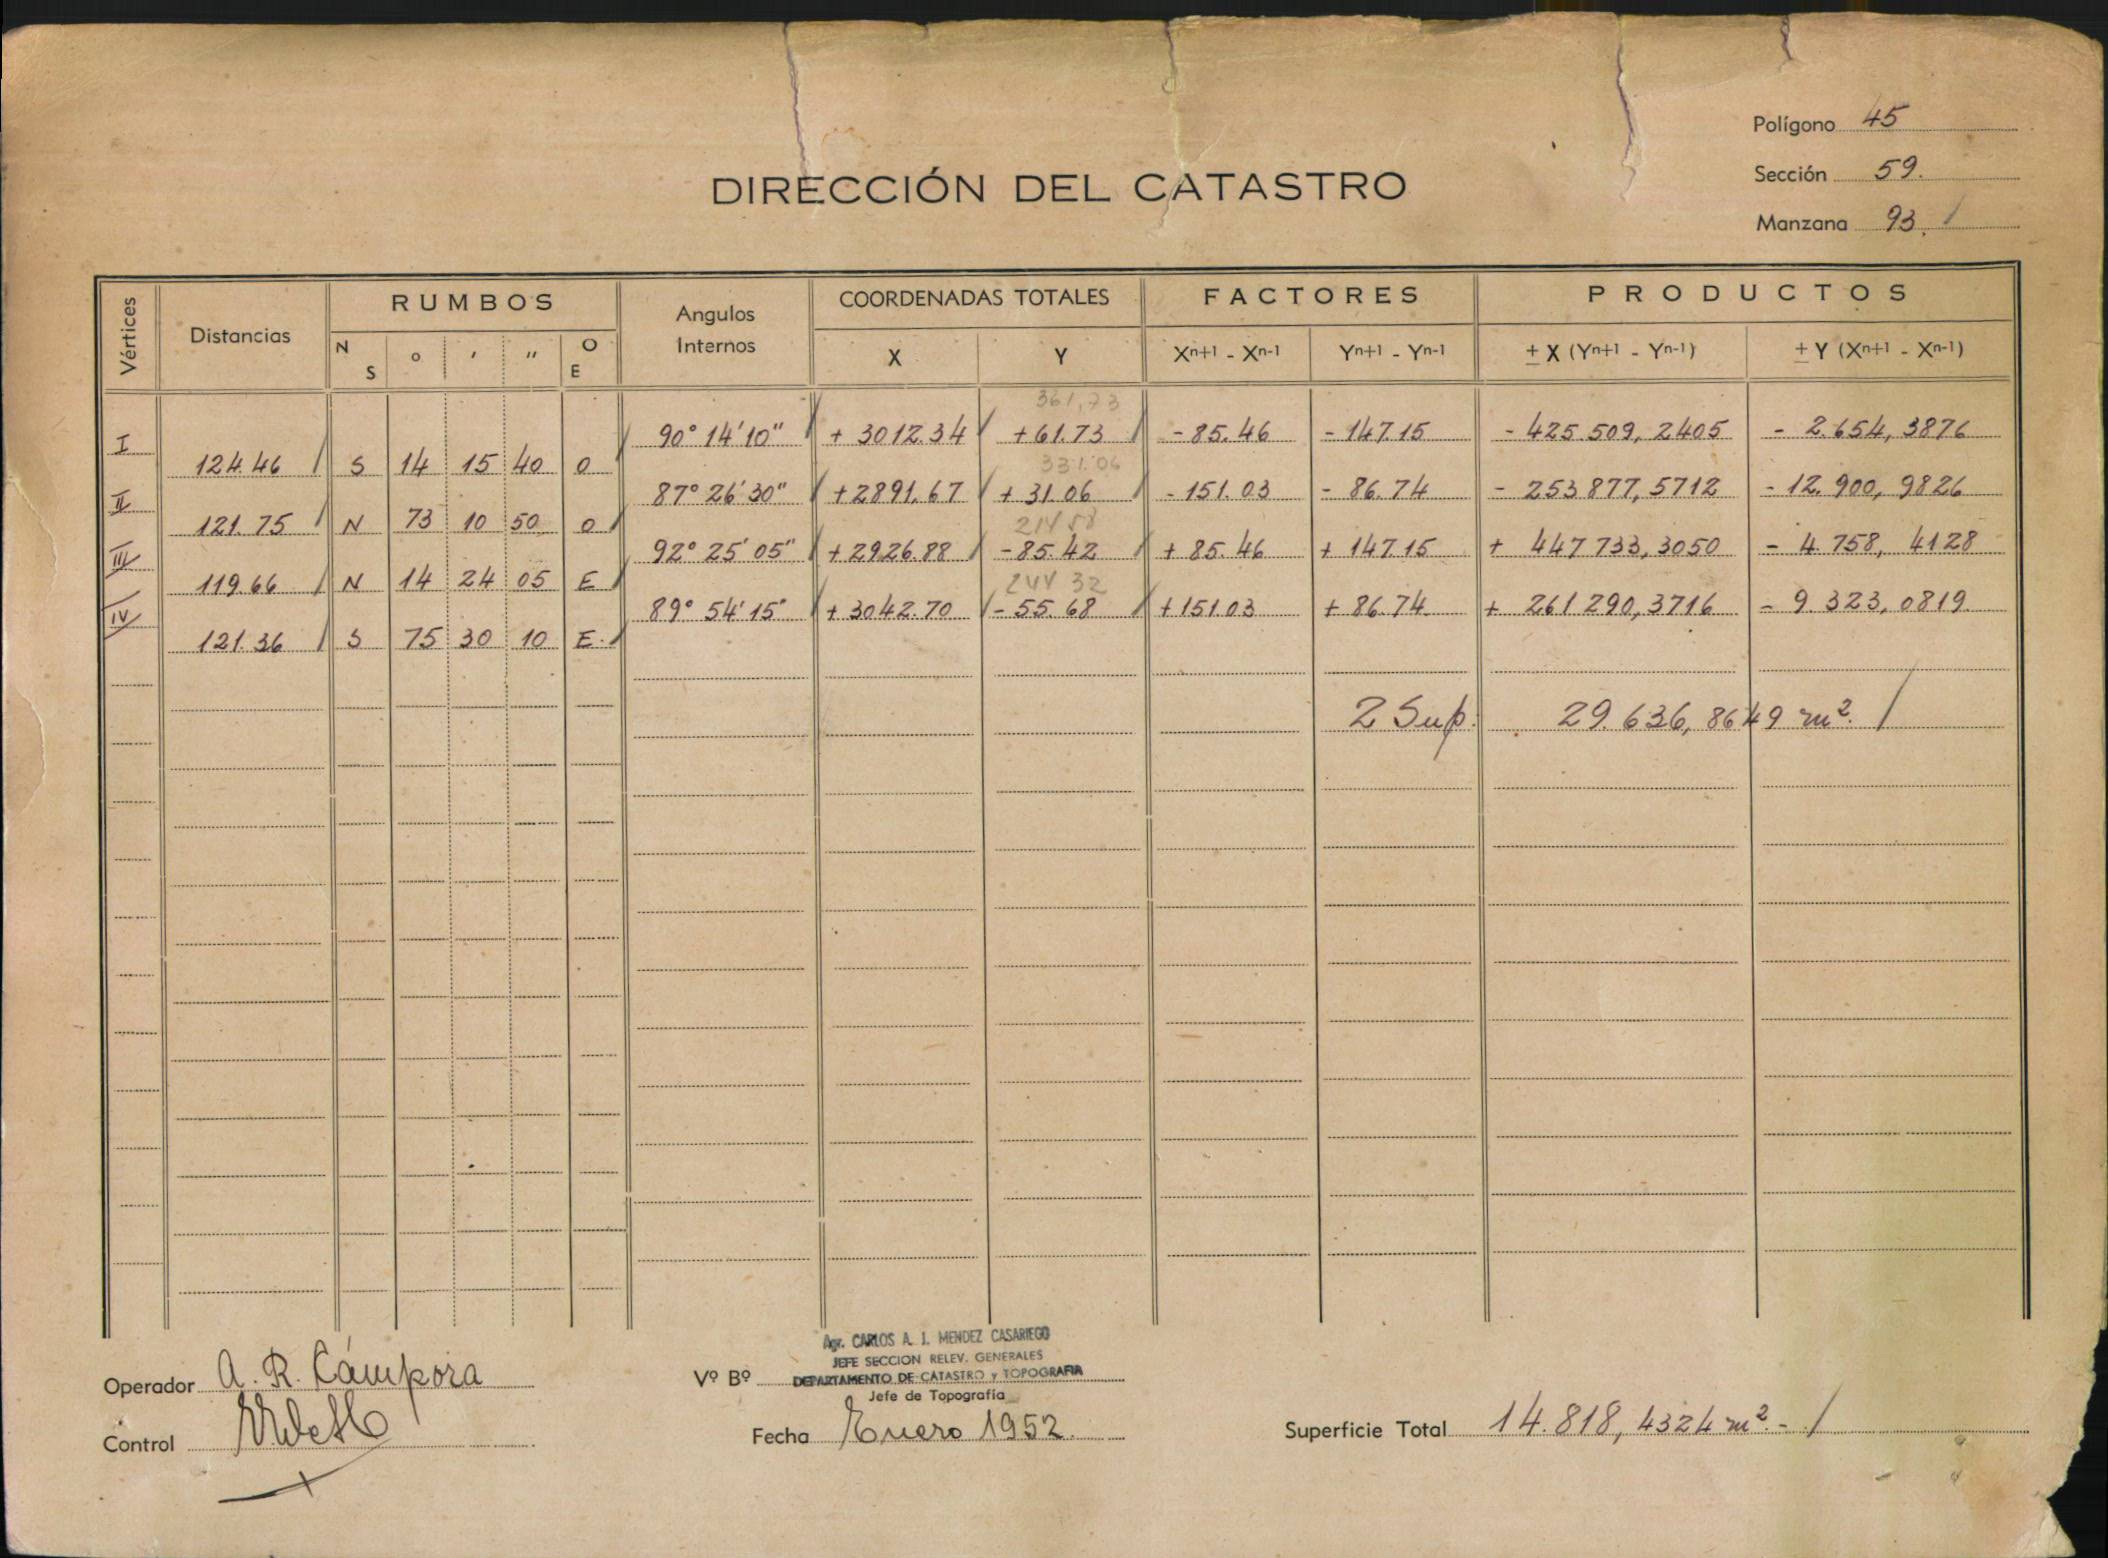 Polígono 45
DIRECCIÓN DEL CATASTRO
Sección 59.
Manzana 93. /
Vértices Distancias RUMBOS Angulos Internos COORDENADAS TOTALES FACTORES PRODUCTOS
N S ° ' " O E X Y Xn+1 - Xn-1 Yn+1 - Yn-1 ± X (Yn+1 - Yn-1) ± Y (Xn+1 - Xn-1)
361,73
I 90° 14' 10" + 3012.34 + 61.73 - 85.46 - 147.15 - 425.509, 2405 - 2.654, 3876
124.46 S 14 15 40 O
331.06
II 87° 26' 30" + 2891.67 + 31.06 - 151.03 - 86.74 - 253 877, 5712 - 12.900, 9826
121.75 N 73 10 50 O
III 92° 25' 05" + 2926.88 - 85.42 + 85.46 + 147.15 + 447 733, 3050 - 4.758, 4128
119.66 N 14 24 05 E
244 32
IV 89° 54' 15" + 3042.70 - 55.68 + 151.03 + 86.74 + 261 290, 3716 - 9.323, 0819
121.36 S 75 30 10 E.
2 Sup. 29.636, 8649 m². /
Agr. CARLOS A. J. MENDEZ CASARIEGO
JEFE SECCION RELEV. GENERALES
Operador A. R. Cámpora Vº Bº DEPARTAMENTO DE CATASTRO y TOPOGRAFIA
Jefe de Topografía
Control Fecha Enero 1952. Superficie Total 14.818, 4324 m². - /